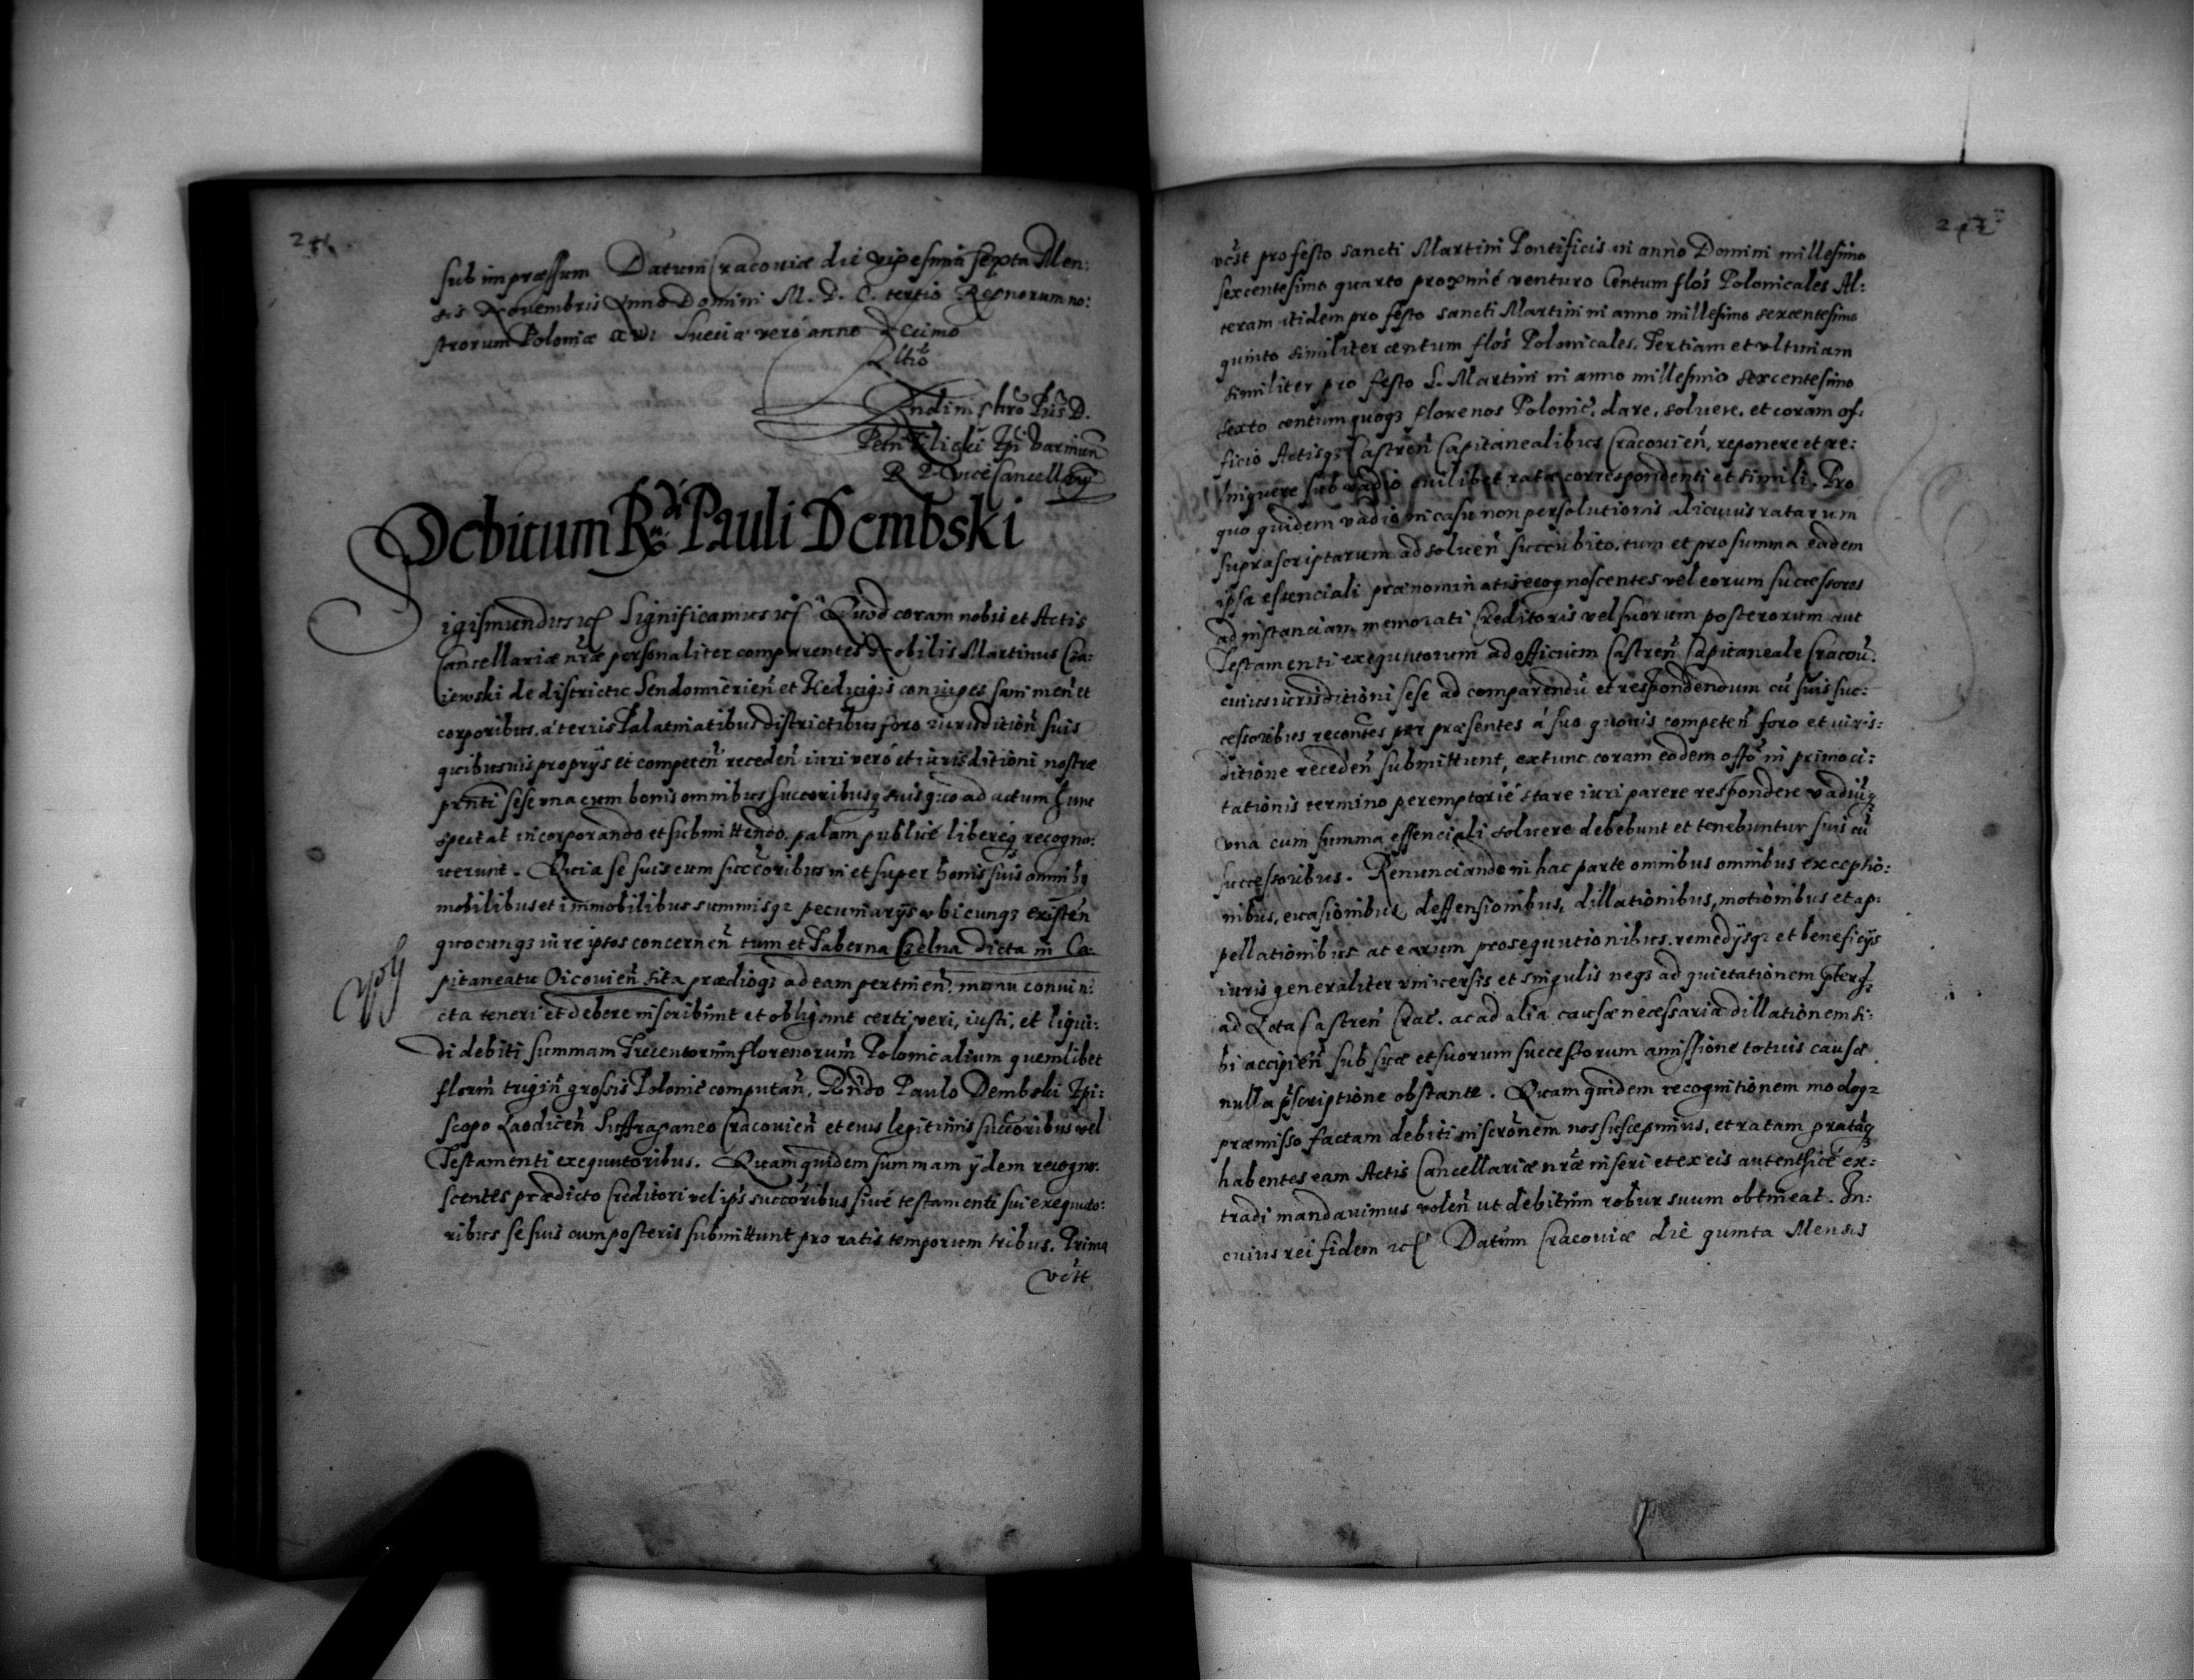 sub impræssum Datum Cracoviæ die vigesima sexta Men:
sis Novembris Anno Domini M. D. C. tertio Regnorum no:
strorum Poloniæ XVI Sueciæ vero anno decimo
Petri Tilicki Epi Varmien
R P. Vicecancellarij
Debitum Rndi Pauli Dembski
Sigismundus etc Significamus etc Quod coram nobis et Actis
Cancellariæ nræ personaliter comparentes Nobilis Martinus
iewski de districtu Sendomirien et Hedvigis coniuges sani men et
corporibus, a terris Palatinatibus districtibus foro iurisdition suis
quibusuis proprijs et competen receden iuri vero et iurisditioni nostræ
prnti sese una cum bonis omnibus succoribusq suis quo ad actum hunc
spectat incorporando et submittendo, palam publicé libereq recogno:
uerunt. Quia se suis cum succoribus in et super bonis suis omnibq
mobilibus et immobilibus summisqz pecuniarijs vbicunqz existen
quocunqz iure iptos concernen tum et Taberna Czelna dicta in Ca:
pitaneatu Oicovien sita prædioqz ad eam pertinen manu coniun:
cta teneri et debere inscribunt et obligant certi, veri, iusti, et liqui:
di debiti summam Trecentorum florenorum Polonicalium quemlibet
floren trigin grossis Polonic computan, Rndo Paulo Dembski Epi:
scopo Laodicen Suffraganeo Cracovien et eius legitimis succoribus vel
Testamenti exequutoribus. Quam quidem summam ydem recogno:
scentes prædicto Creditori vel ips succoribus sivé testamenti sui exequuto:
ribus se suis cum posteris submittunt pro ratis temporum tribus. Prima
vctt
vctt pro festo sancti Martini Pontificis in anno Domini millesimo
sexcentesimo quarto proximé venturo Centum flos Polonicales Al:
teram itidem pro festo sancti Martini in anno millesimo sexcentesimo
quinto similiter centum flos Polonicales. Tertiam et vltimam
similiter pro festo S. Martini in anno millesimo sexcentesimo
sexto centum quoqz florenos Polonic, dare, soluere, et coram of:
ficio Actisqz Castren Capitanealibus Cracovien, reponere et re:
linquere sub vadio cuilibet ratæ correspondenti et simili. Pro
quo quidem vadio in casu non persolutionis alicuius ratarum
suprascriptarum ad soluen succubito, tum et pro summa eadem
ipsa essenciali prænominati recognoscentes vel eorum successores
ad instanciam memorati Creditoris vel suorum posterorum aut
Testamenti exequutorum ad officium Castren Capitaneale Cracov.
cuius iurisditioni sese ad comparendu et respondendum cu suis suc:
cessoribus recontes per præsentes á suo quouis competen foro et iuris:
ditione receden submittunt, extunc coram eodem offo in primo ci:
tationis termino peremptorié stare iuri parere respondere vadiuq
vna cum summa essenciali soluere debebunt et tenebuntur suis cu
successoribus. Renunciando in hac parte omnibus omnibus exceptio:
nibus, euasionibus, deffensionibus, dillationibus, motionibus et ap:
pellationibus ac earum prosequutionibus, remedijsqz et beneficijs
iuris generaliter vniuersis et singulis neqz ad quietationem
ad Acta Castren Crac. ac ad alia causæ necessaria dillationem si:
bi accipien sub suæ et suorum successorum amissione totius causæ
nulla pscriptione obstante. Quam quidem recognitionem modoqz
præmisso factam debiti inscronem nos suscepimus, et ratam grataq
habentes eam Actis Cancellariæ nræ inseri et ex eis autenthicé ex:
tradi mandauimus volen ut debitum robur suum obtineat. In:
cuius rei fidem etc Datum Cracoviæ die quinta Mensis